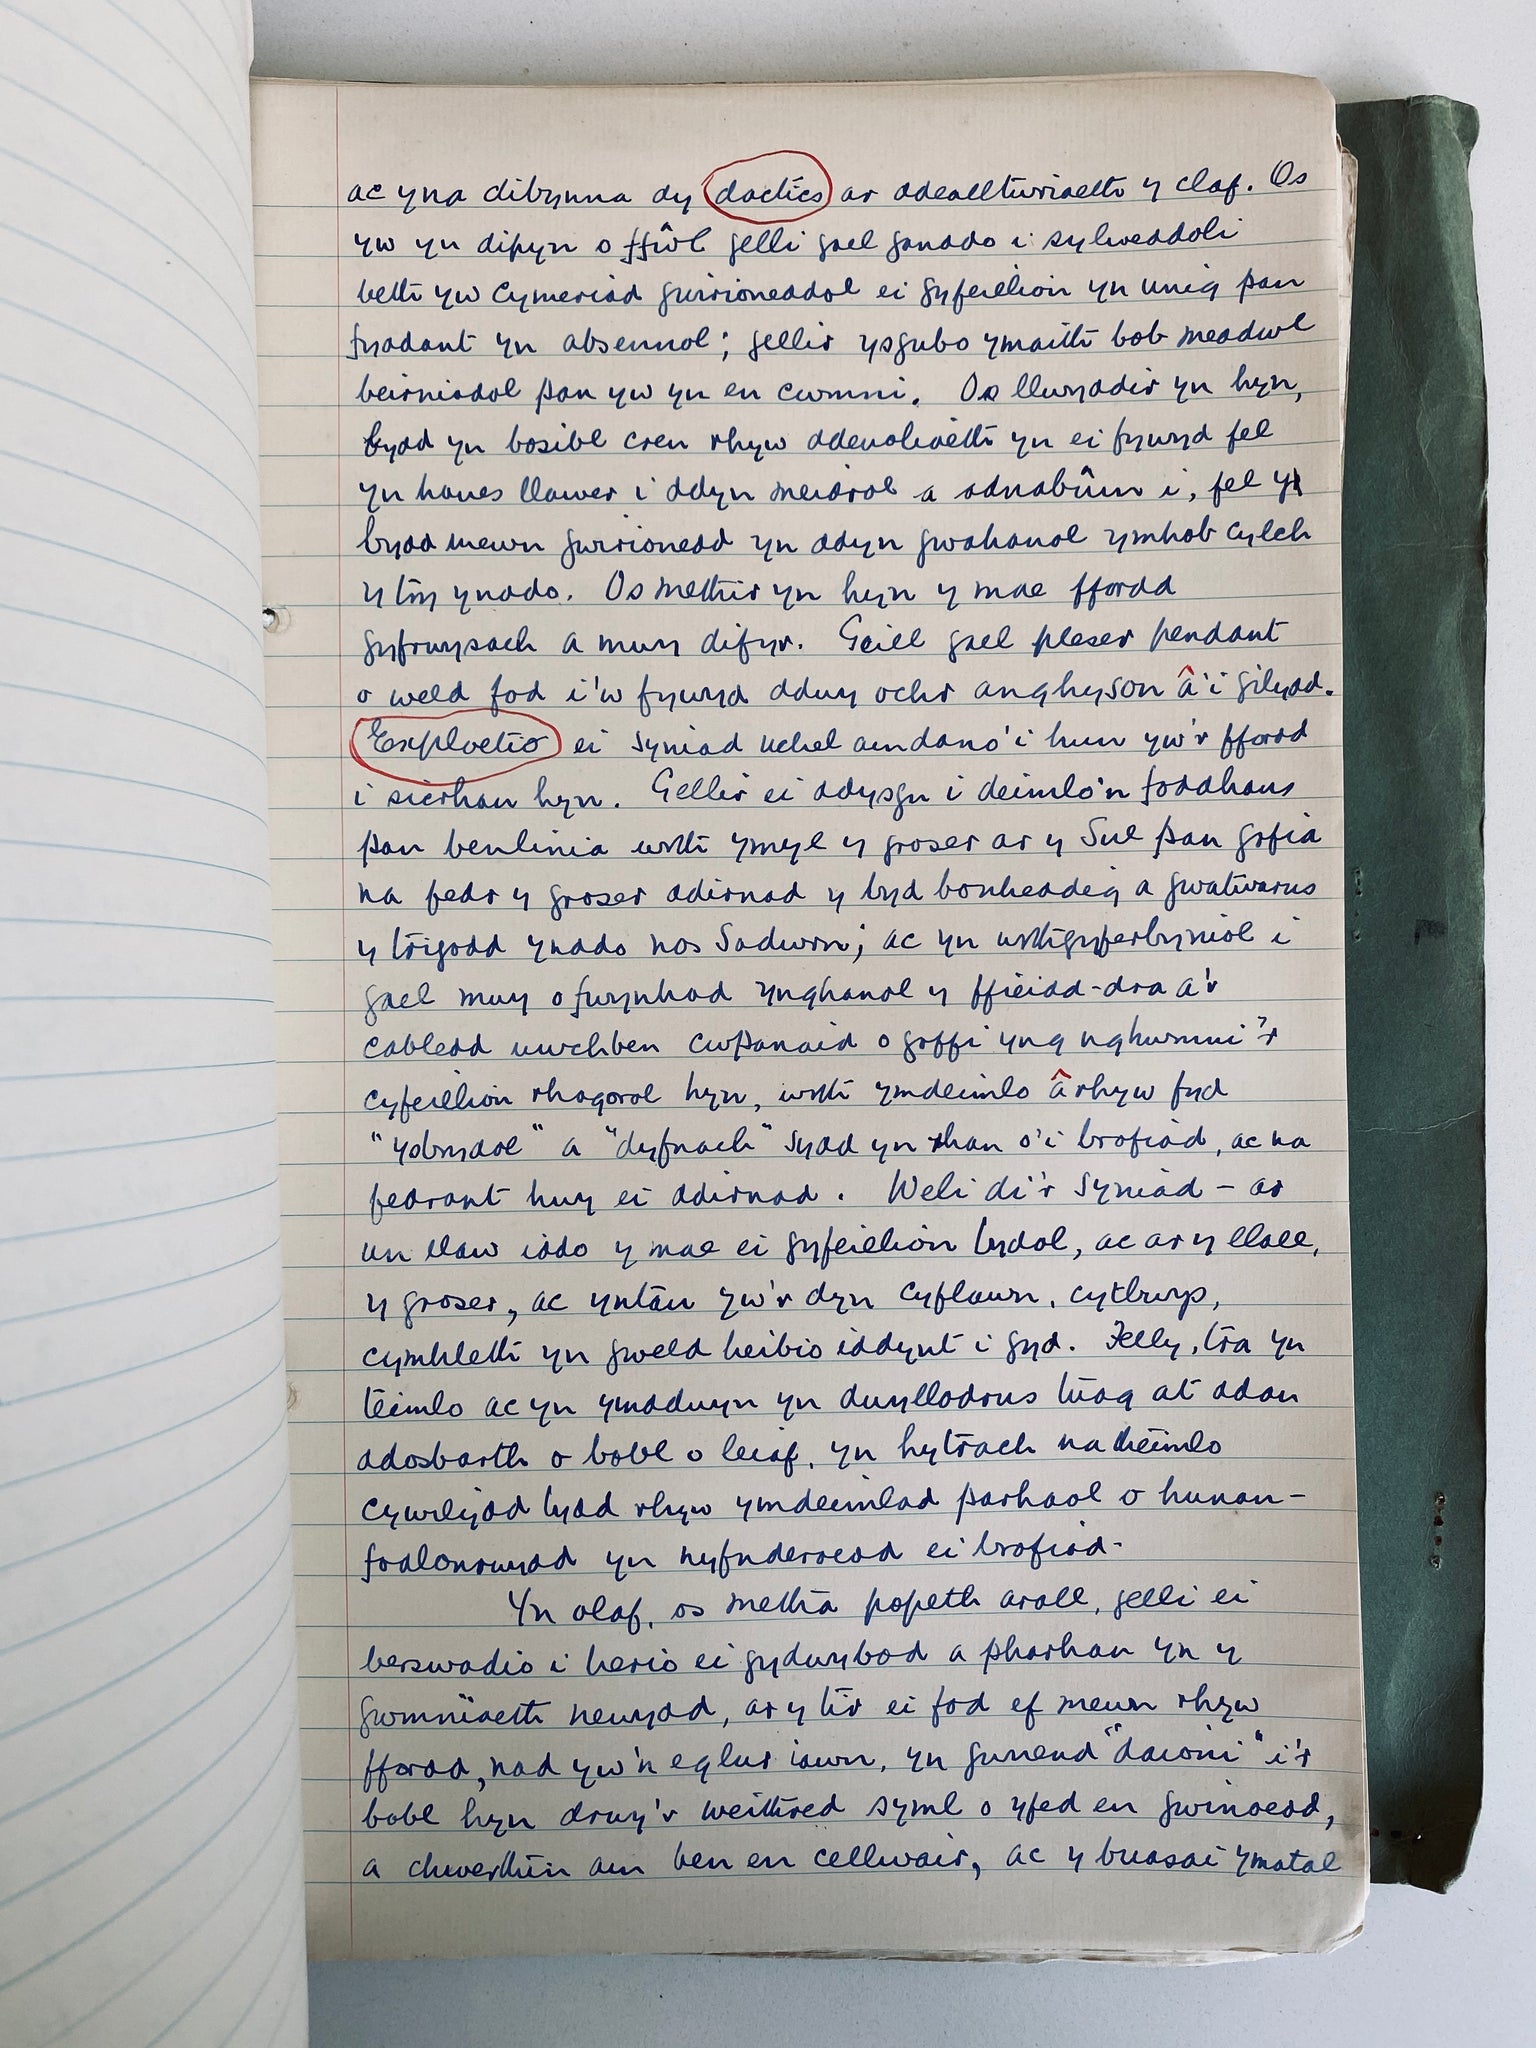 ac yna dibynna dy dactics ar ddealltwriaeth y claf. Os
yw yn dipyn o ffŵl gelli gael ganddo i sylweddoli
beth yw cymeriad gwirioneddol ei gyfeillion yn unig pan
fyddant yn absennol; gellir ysgubo ymaith bob meddwl
beirniadol pan yw yn eu cwmni. Os llwyddir yn hyn,
bydd yn bosibl creu rhyw ddeuoliaeth yn ei fywyd fel
yn hanes llawer i ddyn meidrol a adnabûm i, fel y
bydd mewn gwirionedd yn ddyn gwahanol ymhob cylch
y try ynddo. Os methir yn hyn y mae ffordd
gyfrwysach a mwy difyr. Geill gael pleser pendant
o weld fod i'w fywyd ddwy ochr anghyson â'i gilydd.
Exploetio ei syniad uchel amdano'i hun yw'r ffordd
i sicrhau hyn. Gellir ei ddysgu i deimlo'n foddhaus
pan benlinia wrth ymyl y groser ar y Sul pan gofia
na fedr y groser ddirnad y byd bonheddig a gwatwarus
y trigodd ynddo nos Sadwrn; ac yn wrthgyferbyniol i
gael mwy o fwynhad ynghanol y ffieidd-dra a'r
cabledd uwchben cwpanaid o goffi yng nghwmni'r
cyfeillion rhagorol hyn, wrth ymdeimlo â rhyw fyd
"ysbrydol" a "dyfnach" sydd yn rhan o'i brofiad, ac na
fedrant hwy ei ddirnad. Weli di'r syniad - ar
un llaw iddo y mae ei gyfeillion bydol, ac ar y llall,
y groser, ac yntau yw'r dyn cyflawn, cytbwys,
cymhleth yn gweld heibio iddynt i gyd. Felly, tra yn
teimlo ac yn ymddwyn yn dwyllodrus tuag at ddau
ddosbarth o bobl o leiaf, yn hytrach na theimlo
cywilydd bydd rhyw ymdeimlad parhaol o hunan-
fodlonrwydd yn nyfnderoedd ei brofiad.
Yn olaf, os metha popeth arall, gelli ei
berswadio i herio ei gydwybod a pharhau yn y
gwmnïaeth newydd, ar y tir ei fod ef mewn rhyw
ffordd, nad yw'n eglur iawn, yn gwneud "daioni" i'r
bobl hyn drwy'r weithred syml o yfed eu gwinoedd,
a chwerthin am ben eu cellwair, ac y buasai ymatal